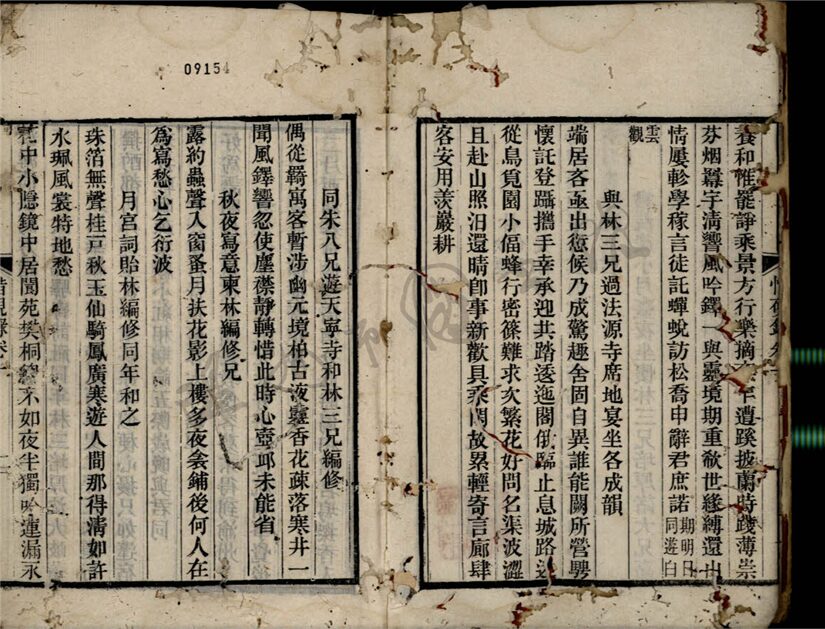 養和惟罷諍乘景方行樂摘年遭蹊披蘭時踐薄崇
芬烟羃宇淸響風吟鐸一與靈境期重欷世緣縛還山
情屢軫學稼言徒託蟬蛻訪松喬申辭君庶諾期明日同遊白
雲觀
與林三兄過法源寺席地宴坐各成韻
端居客亟出愆候乃成驚趣舍固自異誰能闚所營騁
懷託登躡攜手幸承迎共踏逶迤閣俄臨止息城路迷
從鳥覓園小偪蜂行密篠難求次繁花好問名渠波澀
且赴山照汨還晴卽事新歡具乘閒故累輕寄言廊肆
客安用羨巖耕
09154
同朱八兄遊天寧寺和林三兄編修
偶從羇寓客暫涉幽元境柏古液靈香花疎落寒井一
聞風鐸響忽使塵襟靜轉惜此時心壺邱未能省
秋夜寫意柬林編修兄
露約蟲聲入窗蚤月扶花影上樓多夜衾鋪後何人在
爲寫愁心乞衍波
月宮詞貽林編修同年和之
珠箔無聲桂戸秋玉仙騎鳳廣寒遊人間那得淸如許
水珮風裳特地愁
花中小隱鏡中居閬苑樊桐總不如夜半獨吟蓮漏永